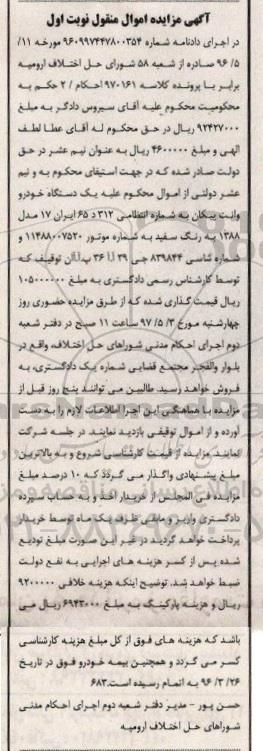 آگهی مزایده اموال منقول نوبت اول
در اجرای دادنامه شماره ۹۶۰۹۹۷۴۴۷۸۰۰۳۵۴ مورخه ۱۱/
۵/ ۹۶ صادره از شعبه ۵۸ شورای حل اختلاف ارومیه
برابر با پرونده کلاسه ۹۷۰۱۶۱ احکام / ۲ حکم به
محکومیت محکوم علیه آقای سیروس دادگر به مبلغ
۹۲۴۲۷۰۰۰ ریال در حق محکوم له آقای عطا لطف
الهی و مبلغ ۴۶۰۰۰۰۰ ریال به عنوان نیم عشر در حق
دولت صادر شده که در جهت استیفای محکوم به و نیم
عشر دولتی از اموال محکوم علیه یک دستگاه خودرو
وانت پیکان به شماره انتظامی ۳۱۲ د ۶۵ ایران ۱۷ مدل
۱۳۸۸ به رنگ سفید به شماره موتور ۱۱۴۸۸۰۰۷۵۲۰ و
شماره شاسی ۸۳۹۸۴۴ جی ۲۹ آ ۳۶ پ‌آآن توقیف که
توسط کارشناس رسمی دادگستری به مبلغ ۱۰۵۰۰۰۰۰۰
ریال قیمت گذاری شده که از طرق مزایده حضوری روز
چهارشنبه مورخ ۳/ ۵/ ۹۷ ساعت ۱۱ صبح در دفتر شعبه
دوم اجرای احکام مدنی شوراهای حل اختلاف، واقع در
بلوار والفجر مجتمع قضایی شماره یک دادگستری، به
فروش خواهد رسید. طالبین می توانند پنج روز قبل از
مزایده با هماهنگی این اجرا اطلاعات لازم را به دست
آورده و از اموال توقیفی بازدید نمایند. در جلسه شرکت
نمایند. مزایده از قیمت کارشناسی شروع و به بالاترین
مبلغ پیشنهادی واگذار می گردد که ۱۰ درصد مبلغ
مزایده فی المجلس از خریدار اخذ و به حساب سپرده
دادگستری واریز و مابقی ظرف یک ماه توسط خریدار
پرداخت خواهد گردید در غیر این صورت مبلغ تودیع
شده پس از کسر هزینه های اجرایی به نفع دولت
ضبط خواهد شد. توضیح اینکه هزینه خلافی ۹۲۰۰۰۰۰
ریال و هزینه پارکینگ به مبلغ ۶۹۴۳۰۰۰ ریال می
باشد که هزینه های فوق از کل مبلغ هزینه کارشناسی
کسر می گردد و همچنین بیمه خودرو فوق در تاریخ
۲۶/ ۳/ ۹۶ به اتمام رسیده است.۶۸۳
حسن پور - مدیر دفتر شعبه دوم اجرای احکام مدنی
شوراهای حل اختلاف ارومیه